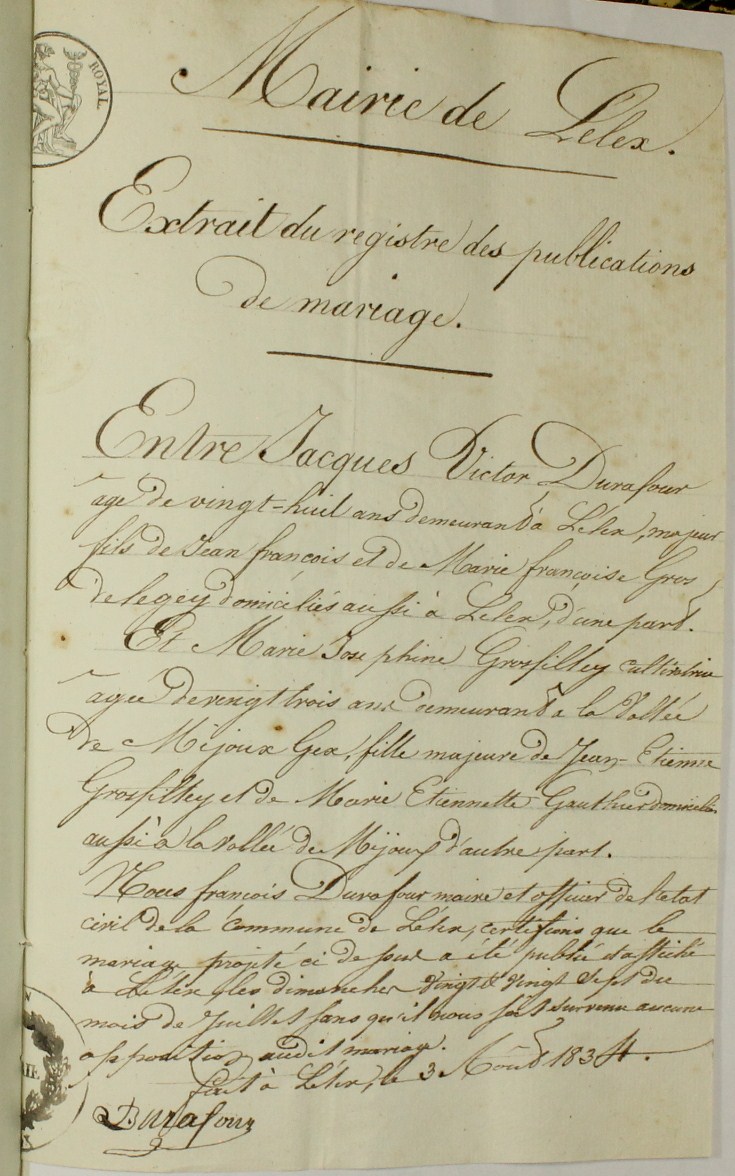 ROYAL
Mairie de Lélex.
Extrait du registre des publications
de mariage.
Entre Jacques Victor Durafour
agé de vingt-huit ans demeurant à Lélex, majeur
fils de Jean françois et de Marie françoise Gros
delegey domiciliés aussi à Lélex, d'une part.
Et Marie Josephine Grosfilley cultivatrice
agée de vingt trois ans demeurant à la Vallée
de Mijoux Gex, fille majeure de Jean-Etienne
Grosfilley et de Marie Etiennette Gauthier domiciliés
aussi à la vallée de Mijoux d'autre part.
Nous françois Durafour maire et officier de l'etat
civil de la commune de Lélex, certifions que le
mariage projeté ci dessus a été publié et affiché
à Lélex les dimanches vingt & vingt sept du
mois de Juillet sans qu'il nous soit survenu aucune
opposition audit mariage.
fait à Lélex, le 3 Août 1834.
Durafour